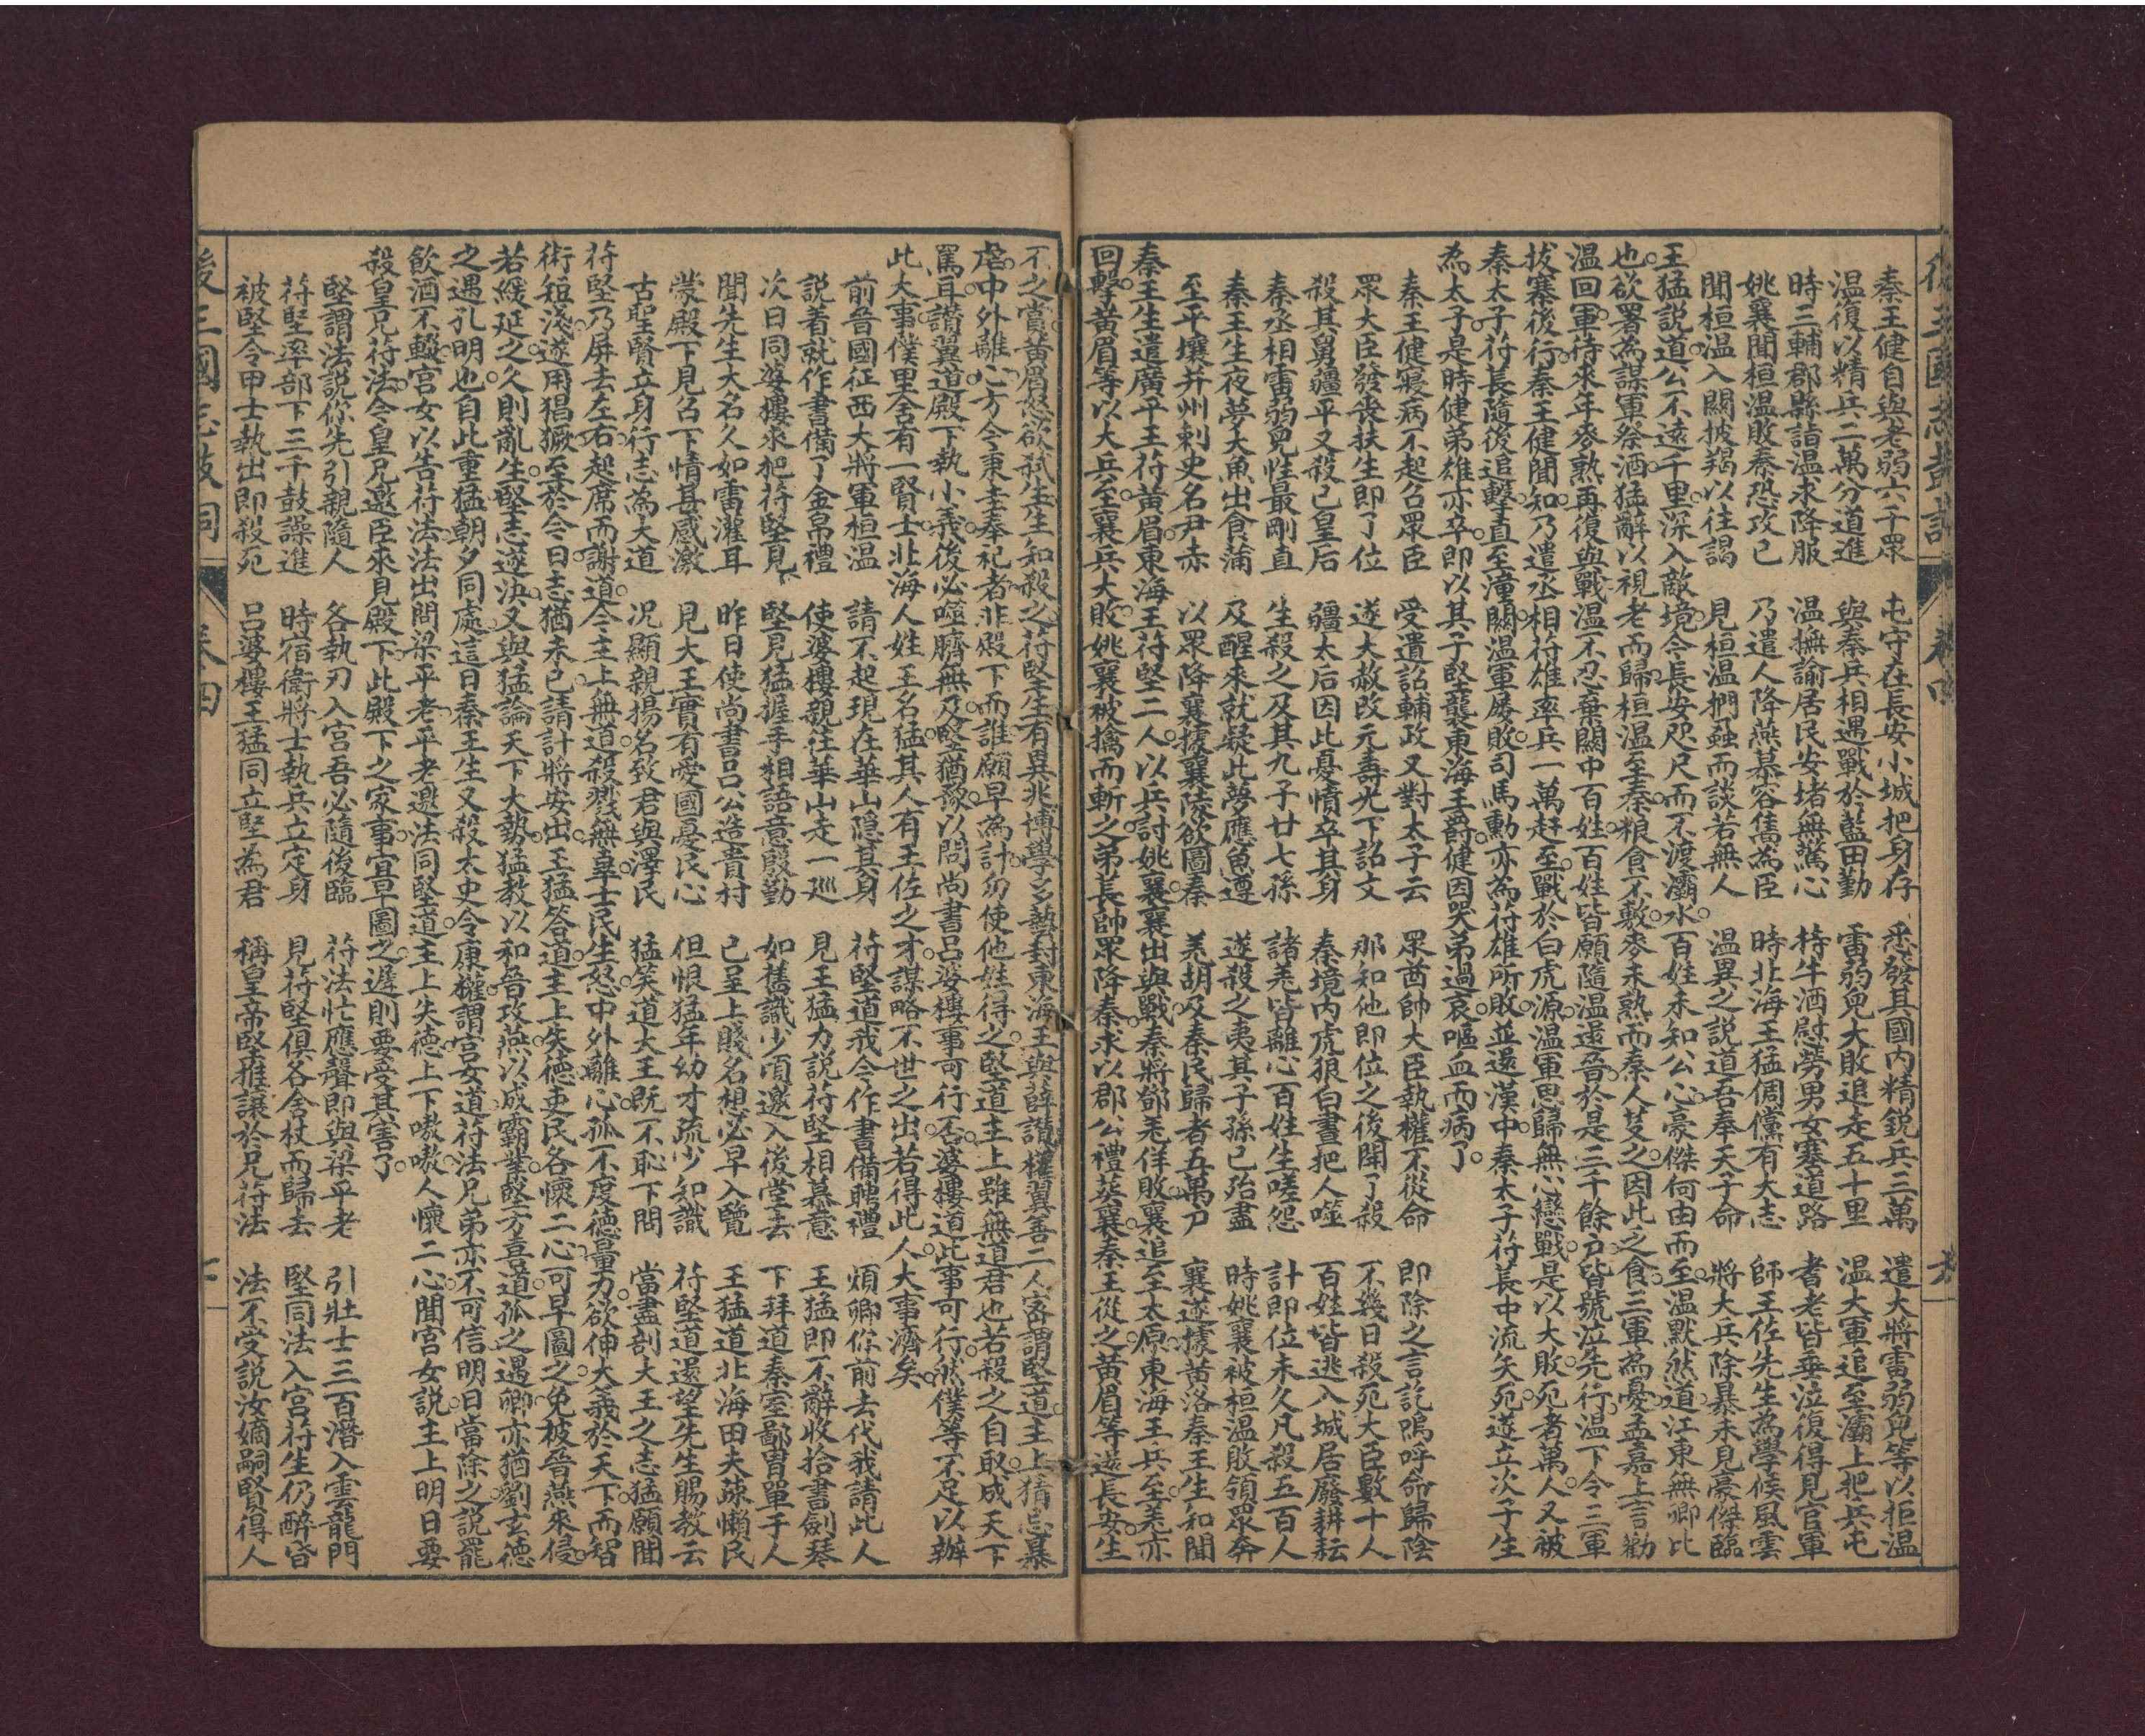 後三國志鼓詞 卷四
秦王健自與老弱六千眾 屯守在長安小城把身存 悉發其國內精銳兵三萬 遣大將雷弱兒等以拒溫
溫復以精兵二萬分道進 與秦兵相遇戰於藍田勤 雷弱兒大敗追走五十里 溫大軍追至灞上把兵屯
時三輔郡縣詣溫求降服 溫撫諭居民安堵無驚心 持牛酒慰勞男女塞道路 耆老皆垂泣復得見官軍
姚襄聞桓溫敗秦恐攻己 乃遣人降燕慕容儁為臣 時北海王猛倜儻有大志 師王佐先生為學候風雲
聞桓溫入關披羯以往謁 見桓溫捫蝨而談若無人 溫異之說道吾奉天子命 將大兵除暴未見豪傑臨
王猛說道公不遠千里深入敵境今長安咫尺而不渡灞水百姓未知公心豪傑何由而至溫默然道江東無卿比
也欲署為謀軍祭酒猛辭以視老而歸桓溫至秦粮食不敷麥未熟而秦人芟之因此之食三軍為憂孟嘉上言勸
溫回軍待來年麥熟再復與戰溫不忍棄關中百姓百姓皆願隨溫還晉於是三千餘户皆號泣先行溫下令三軍
拔寨後行秦王健聞知乃遣丞相苻雄率兵一萬赶至戰於白虎源溫軍思歸無心戀戰是以大敗死者萬人又被
秦太子苻萇隨後追擊直至潼關溫軍屡敗司馬勳亦為苻雄所敗並還漢中秦太子苻萇中流矢死遂立次子生
為太子是時健弟雄亦卒即以其子堅襲東海王爵健因哭弟過哀嘔血而病了
秦王健寢病不起召眾臣 受遺詔輔政又對太子云 眾酋帥大臣執權不從命 即除之言訖嗚呼命歸陰
眾大臣發喪扶生即了位 遂大赦改元壽光下詔文 那知他即位之後開了殺 不幾日殺死大臣數十人
殺其舅彊平又殺己皇后 彊太后因此憂憤卒其身 秦境內虎狼白晝把人噬 百姓皆逃入城居廢耕耘
秦丞相雷弱兒性最剛直 生殺之及其九子廿七孫 諸羌皆離心百姓生嗟怨 計即位未久凡殺五百人
秦王生夜夢大魚出食蒲 及醒來就疑此夢應魚遵 遂殺之夷其子孫已殆盡 時姚襄被桓溫敗領眾奔
至平壤并州刺史名尹赤 以眾降襄據襄陵欲圖秦 羌胡及秦民歸者五萬户 襄遂據黃洛秦王生和聞
秦王生遣廣平王苻黃眉東海王苻堅二人以兵討姚襄襄出與戰秦將鄧羌佯敗襄追至太原東海王兵至羌亦
回擊黃眉等以大兵至襄兵大敗姚襄被擒而斬之弟萇帥眾降秦求以郡公禮葬襄秦王從之黃眉等還長安生
不之賞黃眉怒欲弒生生知殺之苻堅生有異兆博學多藝封東海王與薛讚權翼善二人密謂堅道主上猜忌暴
虐中外離心方今秉圭奉祀者非殿下而誰願早為計勿使他姓得之堅道主上雖無道君也若殺之自取成天下
罵耳讚翼道殿下執小義後必噬臍無及堅猶豫以問尚書呂婆樓事可行否婆樓道此事可行然僕等不足以辦
此大事僕里舍有一賢士北海人姓王名猛其人有王佐之才謀略不世之出若得此人大事濟矣
前晉國征西大將軍桓溫 請不起現在華山隱其身 苻堅道我今作書備聘禮 煩卿你前去代我請此人
說着就作書備了金帛禮 使婆樓親往華山走一巡 見王猛力說苻堅相慕意 王猛即不辭收拾書劍琴
次日同婆樓來把苻堅見 堅見猛握手相語意殷勤 如舊識少頃邀入後堂去 下拜道秦室鄙冑單于人
聞先生大名久如雷濯耳 昨日使尚書呂公造貴村 已呈上賤名想必早入覽 王猛道北海田夫疎懶民
蒙殿下見召下情甚感激 見大王實有愛國憂民心 但恨猛年幼才疏少知識 苻堅道還望先生賜教云
古聖賢立身行志為大道 況顯親揚名致君與澤民 猛笑道大王既不恥下問 當盡剖大王之志猛願聞
苻堅乃屏去左右起席而謝道今主上無道殺戮無辜士民生怨中外離心孤不度德量力欲伸大義於天下而智
術短淺遂用猖獗至於今日志猶未已請計將安出王猛答道主上失德吏民各懷二心可早圖之免被晉燕來侵
若緩延之久則亂生堅志遂決又與猛論天下大勢猛教以和晉攻燕以成霸業堅方喜道孤之遇卿亦猶劉玄德
之遇孔明也自此重猛朝夕同處這日秦王生又殺太史令庚權謂宮女道苻法兄弟亦不可信明日當除之說罷
飲酒不輟宮女以告苻法法出問梁平老平老邀法同堅道主上失德上下嗷嗷人懷二心聞宮女說主上明日要
殺皇兄苻法令皇兄邀臣來見殿下此殿下之家事宜早圖之遲則要受其害了
堅謂法說你先引親隨人 各執刃入宮吾必隨後臨 苻法忙應聲即與梁平老 引壯士三百潛入雲龍門
苻堅率部下三千鼓譟進 時宿衛將士執兵立定身 見苻堅俱各舍杖而歸去 堅同法入宮苻生仍醉昏
被堅令甲士執出即殺死 呂婆樓王猛同立堅為君 稱皇帝堅推讓於兄苻法 法不受說汝嫡嗣賢得人
後三國志鼓詞 卷四